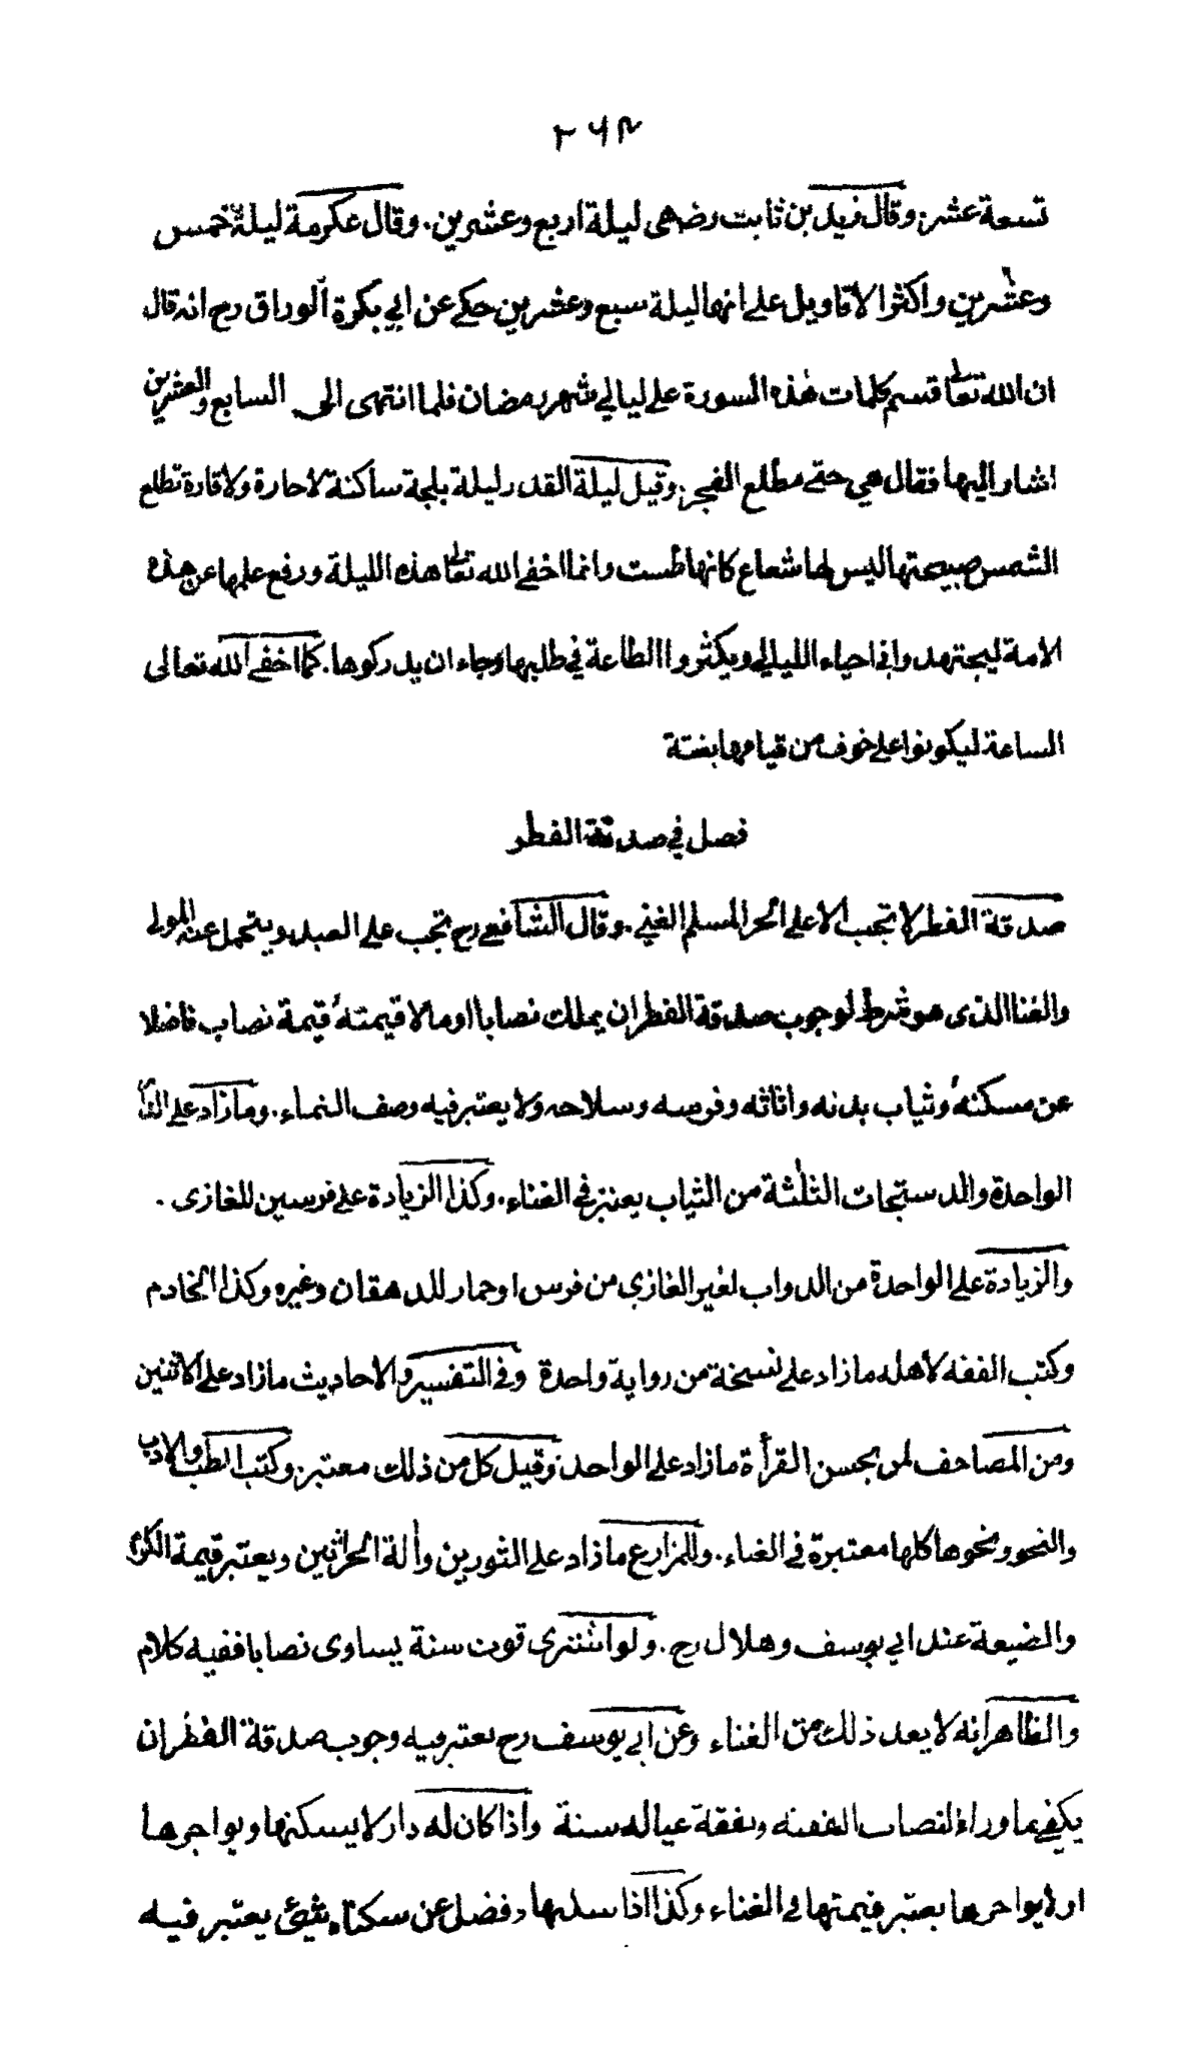 ٢٦٣
تسعة عشر. وقال زيد بن ثابت رض هى ليلة اربع وعشرين. وقال عكرمة ليلة خمس
وعشرين واكثر الاقاويل على انها ليلة سبع وعشرين حكي عن ابي بكرة الوراق رح انه قال
ان الله تعالى قسم كلمات هذه السورة على ليالي شهر رمضان فلما انتهى الى السابع والعشرين
اشار اليها فقال هي حتى مطلع الفجر. وقيل ليلة القدر ليلة بلجة ساكنة لا حارة ولا قارة تطلع
الشمس صبيحتها ليس لها شعاع كانها طست وانما اخفى الله تعالى هذه الليلة ورفع علمها عن هذه
الامة ليجتهدوا في احياء الليالي ويكثروا الطاعة في طلبها رجاء ان يدركوها. كما اخفى الله تعالى
الساعة ليكونوا على خوف من قيامها بغتة
فصل في صدقة الفطر
صدقة الفطر لا تجب الا على الحر المسلم الغني. وقال الشافعى رح تجب على العبد ويتحمل عنه المولى
والغنا الذى هو شرط لوجوب صدقة الفطر ان يملك نصابا او مالا قيمته قيمة نصاب فاضلا
عن مسكنه وثياب بدنه واثاثه وفرسه وسلاحه ولا يعتبر فيه وصف النماء. وما زاد على
الواحدة والدستجات الثلثة من الثياب يعتبر في الغناء. وكذا الزيادة على فرسين للغازى.
والزيادة على الواحدة من الدواب لغير الغازي من فرس او حمار للدهقان وغيره وكذا الخادم
وكتب الفقه لأهله ما زاد على نسخة من رواية واحدة وفى التفسير والاحاديث ما زاد على الاثنين
ومن المصاحف لمن يحسن القرأة ما زاد على الواحد. وقيل كل من ذلك معتبر. وكتب الطب والادب
والنحو ونحوها كلها معتبرة في الغناء. وللمزارع ما زاد على الثورين وألة الحراثين ويعتبر قيمة الكرم
والضيعة عند ابي يوسف وهلال رح. ولو اشترى قوت سنة يساوى نصابا ففيه كلام
والظاهر انه لا يعد ذلك من الغناء وعن ابي يوسف رح يعتبر فيه وجوب صدقة الفطر ان
يكفي ما وراء النصاب لنفقته ونفقة عياله سنة واذا كان له دار لا يسكنها ويواجرها
او لا يواجرها يعتبر قيمتها في الغناء وكذا اذا سكنها وفضل عن سكناه شيئ يعتبر فيه